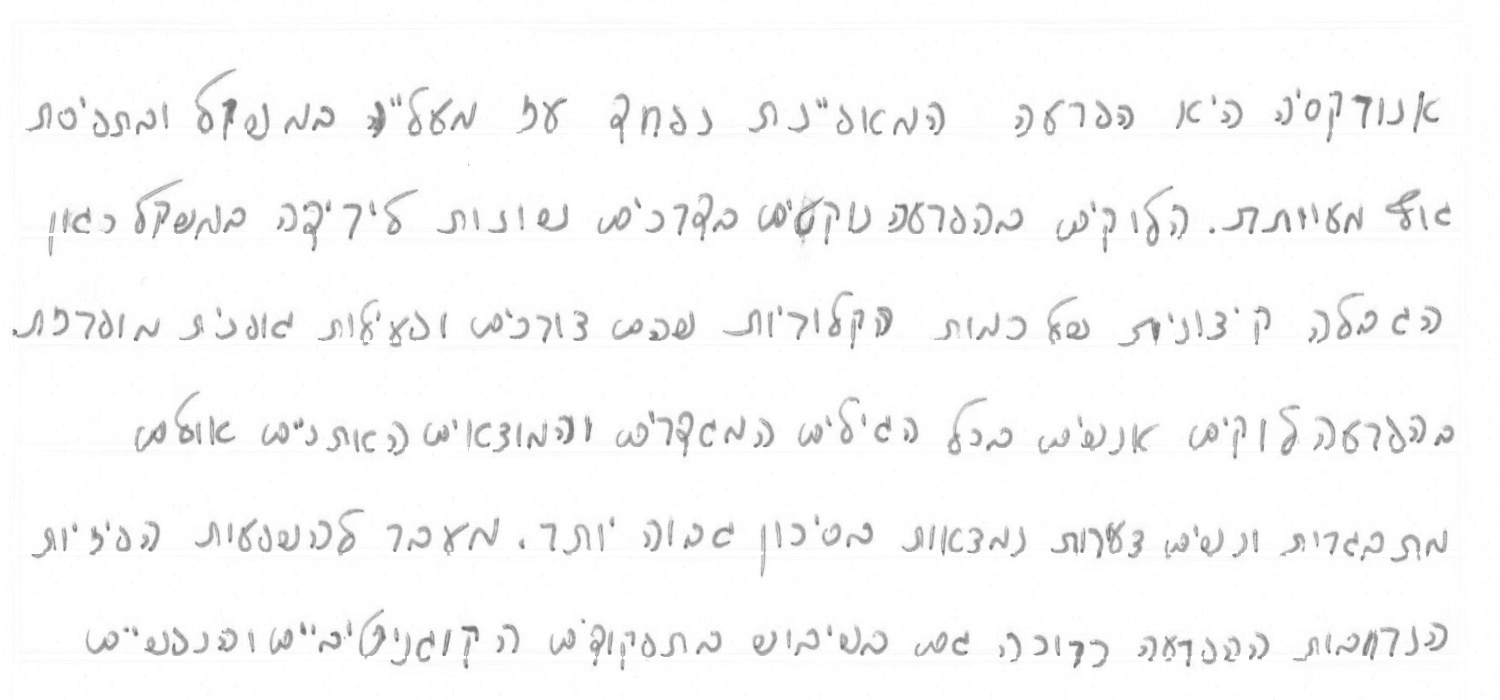 אנורקסיה היא הפרעה המאופיינת בפחד עז מעלייה במשקל ובתפיסת
גוף מעוותת. הלוקים בהפרעה נוקטים בדרכים שונות לירידה במשקל כגון
הגבלה קיצונית של כמות הקלוריות שהם צורכים ופעילות גופנית מופרזת.
בהפרעה לוקים אנשים מכל הגילים המגדרים והמוצאים האתניים אולם
מתבגרות ונשים צעירות נמצאות בסיכון גבוה יותר. מעבר להשפעות הפיזיות
הנרחבות ההפרעה כרוכה גם בשיבוש בתפקודים הקוגניטיביים והנפשיים